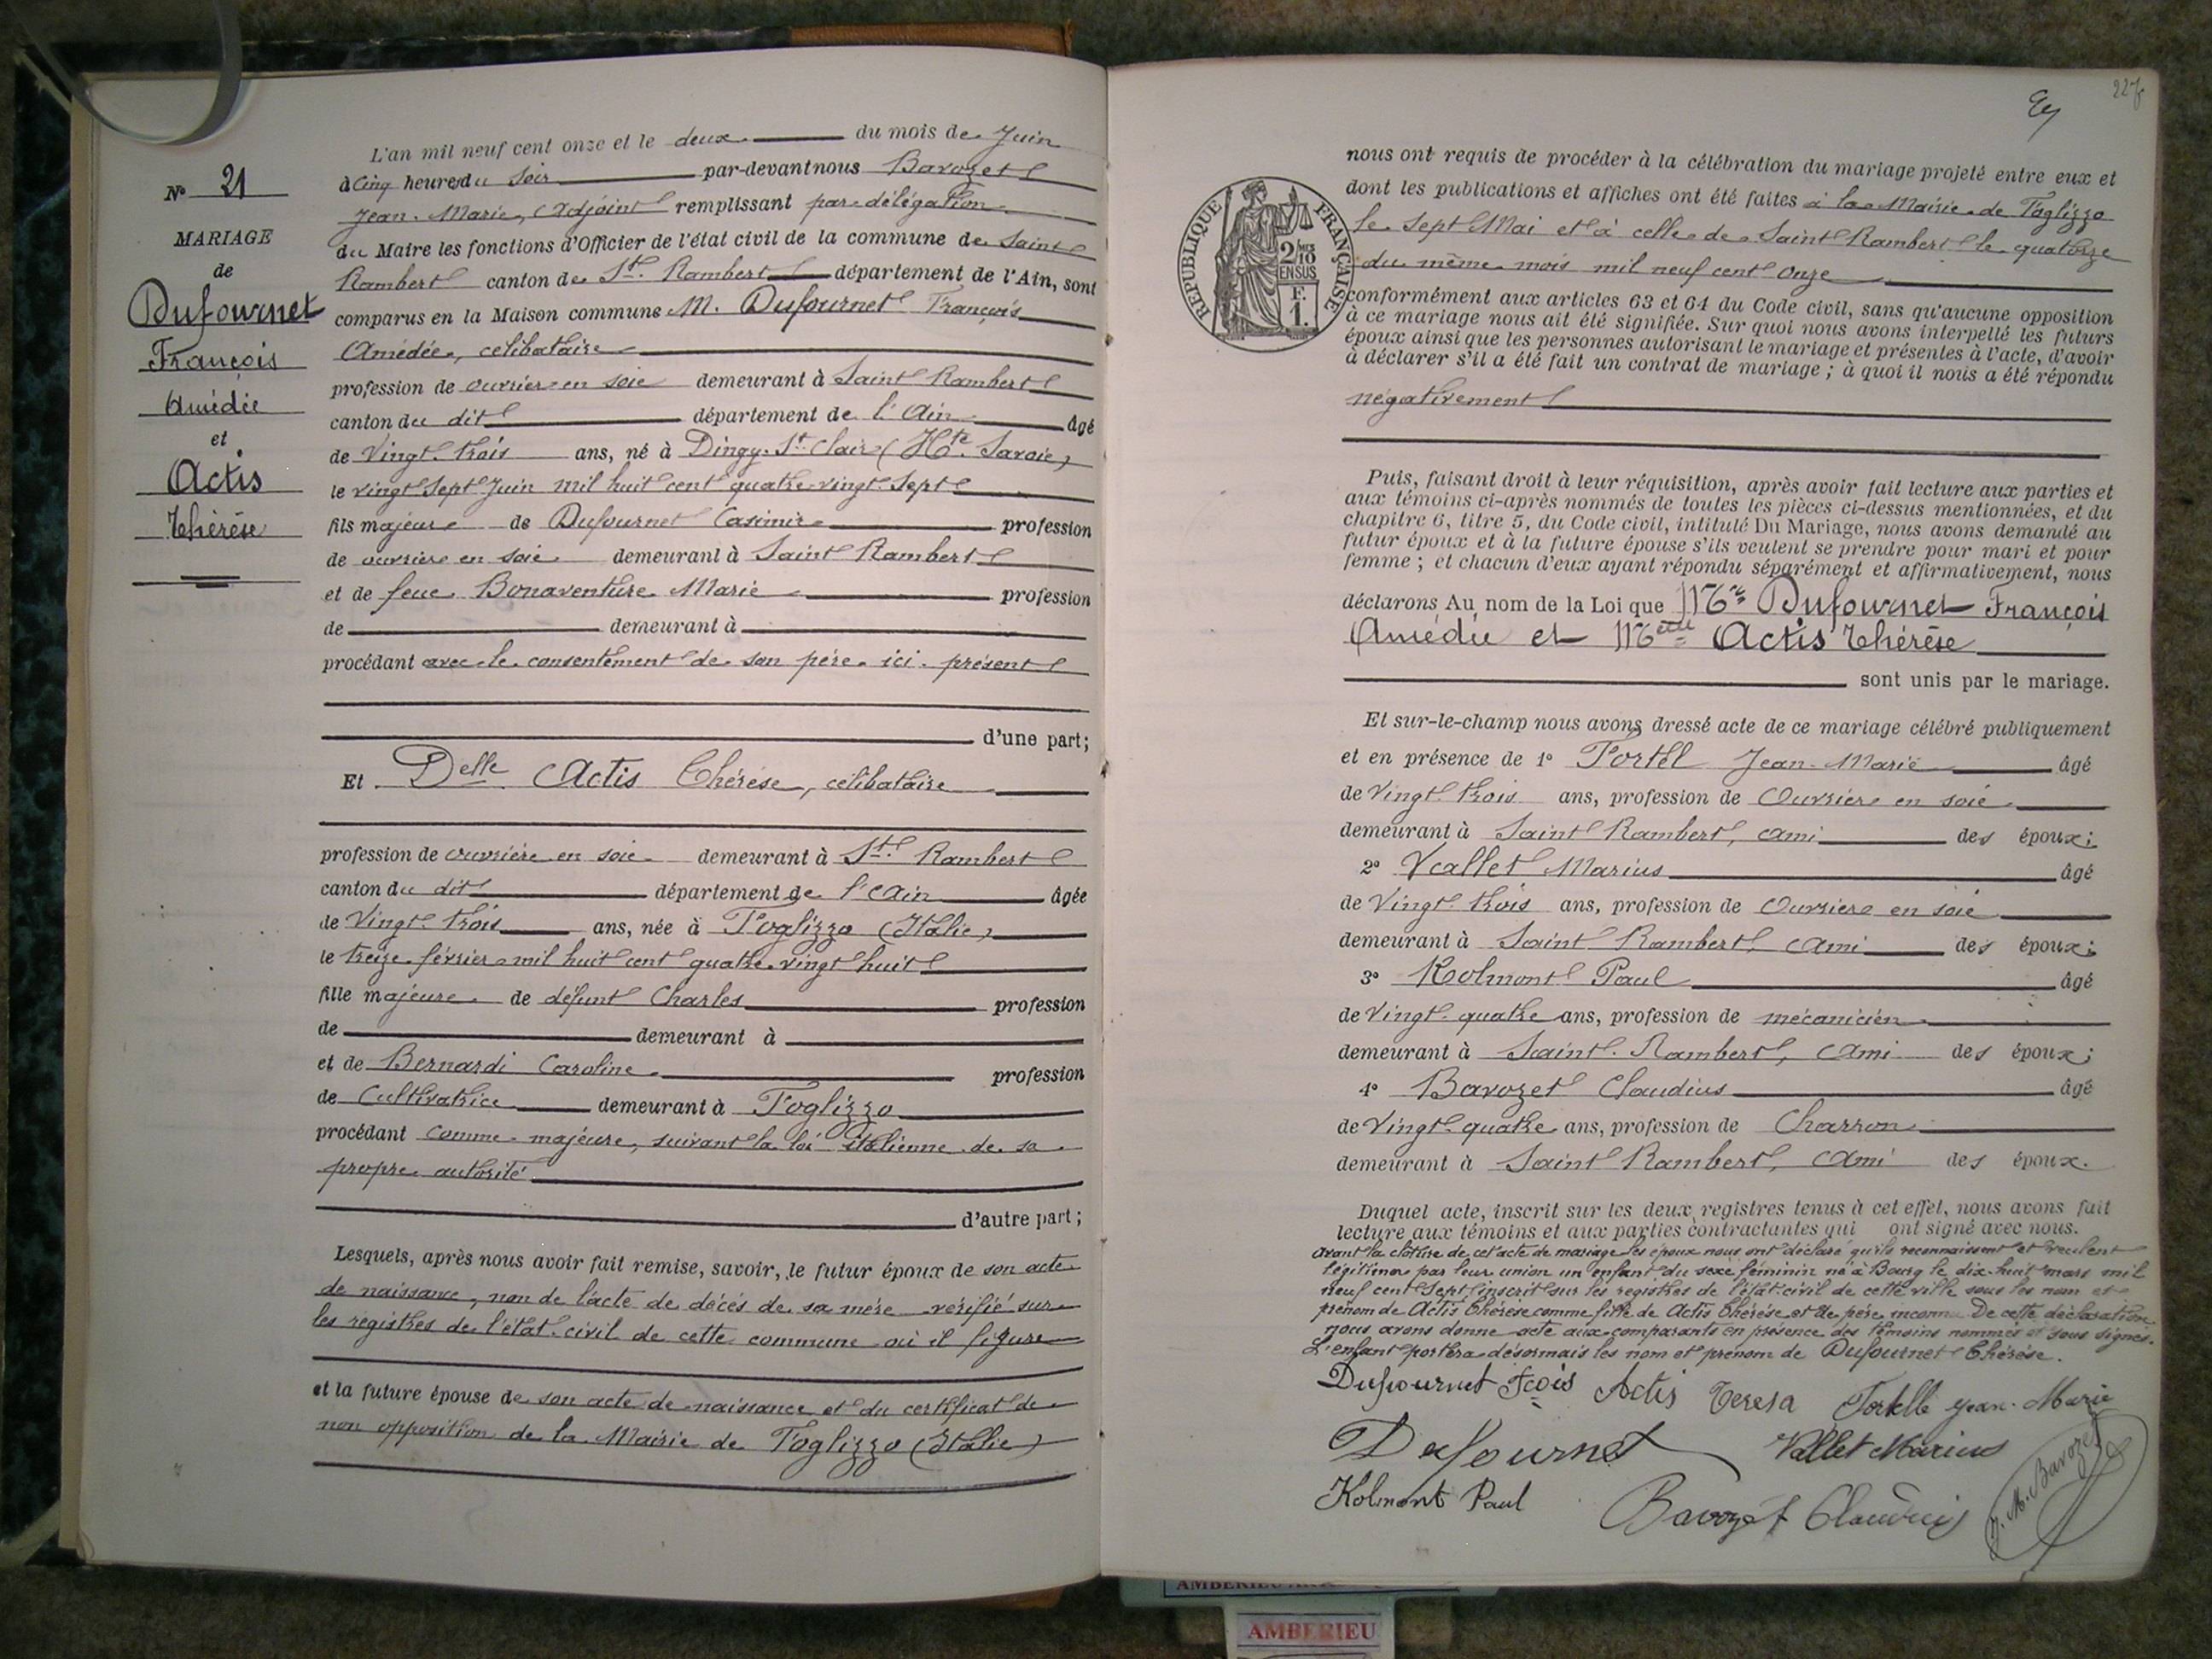 N° 21
MARIAGE
de
Dufournet
François
Amédée
et
Actis
Thérèse
L'an mil neuf cent onze et le deux du mois de Juin
à Cinq heures du soir par-devant nous Bavozet
Jean-Marie, Adjoint remplissant par délégation
du Maire les fonctions d'Officier de l'état civil de la commune de Saint
Rambert canton de St. Rambert département de l'Ain, sont
comparus en la Maison commune M. Dufournet François
Amédée, célibataire
profession de ouvrier en soie demeurant à Saint Rambert
canton du dit département de l'Ain âgé
de Vingt trois ans, né à Dingy-St-Clair (Hte Savoie)
le vingt sept Juin mil huit cent quatre vingt sept
fils majeur de Dufournet Casimir profession
de ouvrier en soie demeurant à Saint Rambert
et de feue Bonaventure Marie profession
de demeurant à
procédant avec le consentement de son père ici présent
d'une part;
Et Delle Actis Thérèse, célibataire
profession de ouvrière en soie demeurant à St. Rambert
canton du dit département de l'Ain âgée
de Vingt trois ans, née à Foglizzo (Italie)
le treize février mil huit cent quatre vingt huit
fille majeure de défunt Charles profession
de demeurant à
et de Bernardi Caroline profession
de Cultivatrice demeurant à Foglizzo
procédant comme majeure, suivant la loi italienne de sa
propre autorité
d'autre part;
Lesquels, après nous avoir fait remise, savoir, le futur époux de son acte
de naissance, non de l'acte de décés de sa mère vérifié sur
les registres de l'état-civil de cette commune où il figure
et la future épouse de son acte de naissance et du certificat de
non opposition de la Mairie de Foglizzo (Italie)
227
RÉPUBLIQUE FRANÇAISE
2/10 MES
EN SUS
F.
1.
nous ont requis de procéder à la célébration du mariage projeté entre eux et
dont les publications et affiches ont été faites à la Mairie de Foglizzo
le sept Mai et à celle de Saint Rambert le quatorze
du même mois mil neuf cent onze
conformément aux articles 63 et 64 du Code civil, sans qu'aucune opposition
à ce mariage nous ait été signifiée. Sur quoi nous avons interpellé les futurs
époux ainsi que les personnes autorisant le mariage et présentes à l'acte, d'avoir
à déclarer s'il a été fait un contrat de mariage; à quoi il nous a été répondu
négativement
Puis, faisant droit à leur réquisition, après avoir fait lecture aux parties et
aux témoins ci-après nommés de toutes les pièces ci-dessus mentionnées, et du
chapitre 6, titre 5, du Code civil, intitulé Du Mariage, nous avons demandé au
futur époux et à la future épouse s'ils veulent se prendre pour mari et pour
femme; et chacun d'eux ayant répondu séparément et affirmativement, nous
déclarons Au nom de la Loi que Mr Dufournet François
Amédée et Melle Actis Thérèse
sont unis par le mariage.
Et sur-le-champ nous avons dressé acte de ce mariage célébré publiquement
et en présence de 1° Fortel Jean-Marie âgé
de Vingt trois ans, profession de Ouvrier en soie
demeurant à Saint Rambert, ami des époux;
2° Vallet Marius âgé
de Vingt trois ans, profession de Ouvrier en soie
demeurant à Saint Rambert, ami des époux;
3° Kolmont Paul âgé
de Vingt quatre ans, profession de mécanicien
demeurant à Saint-Rambert, ami des époux;
4° Bavozet Claudius âgé
de Vingt quatre ans, profession de Charron
demeurant à Saint Rambert, ami des époux.
Duquel acte, inscrit sur les deux registres tenus à cet effet, nous avons fait
lecture aux témoins et aux parties contractantes qui ont signé avec nous.
Avant la clôture de cet acte de mariage les époux nous ont déclaré qu'ils reconnaissent et veulent
légitimer par leur union un enfant du sexe féminin né à Bourg le dix-huit mars mil
neuf cent sept inscrit sur les registres de l'état-civil de cette ville sous les nom et
prénom de Actis Thérèse comme fille de Actis Thérèse et de père inconnu. De cette déclaration
nous avons donné acte aux comparants en présence des témoins nommés et sous signés.
L'enfant portera désormais les nom et prénom de Dufournet Thérèse.
Dufournet Fçois Actis Teresa Jean-Marie
Dufournet Vallet Marius
Kolmont Paul Bavozet Claudius J. M. Bavozet
AMBERIEU
AMBERIEU